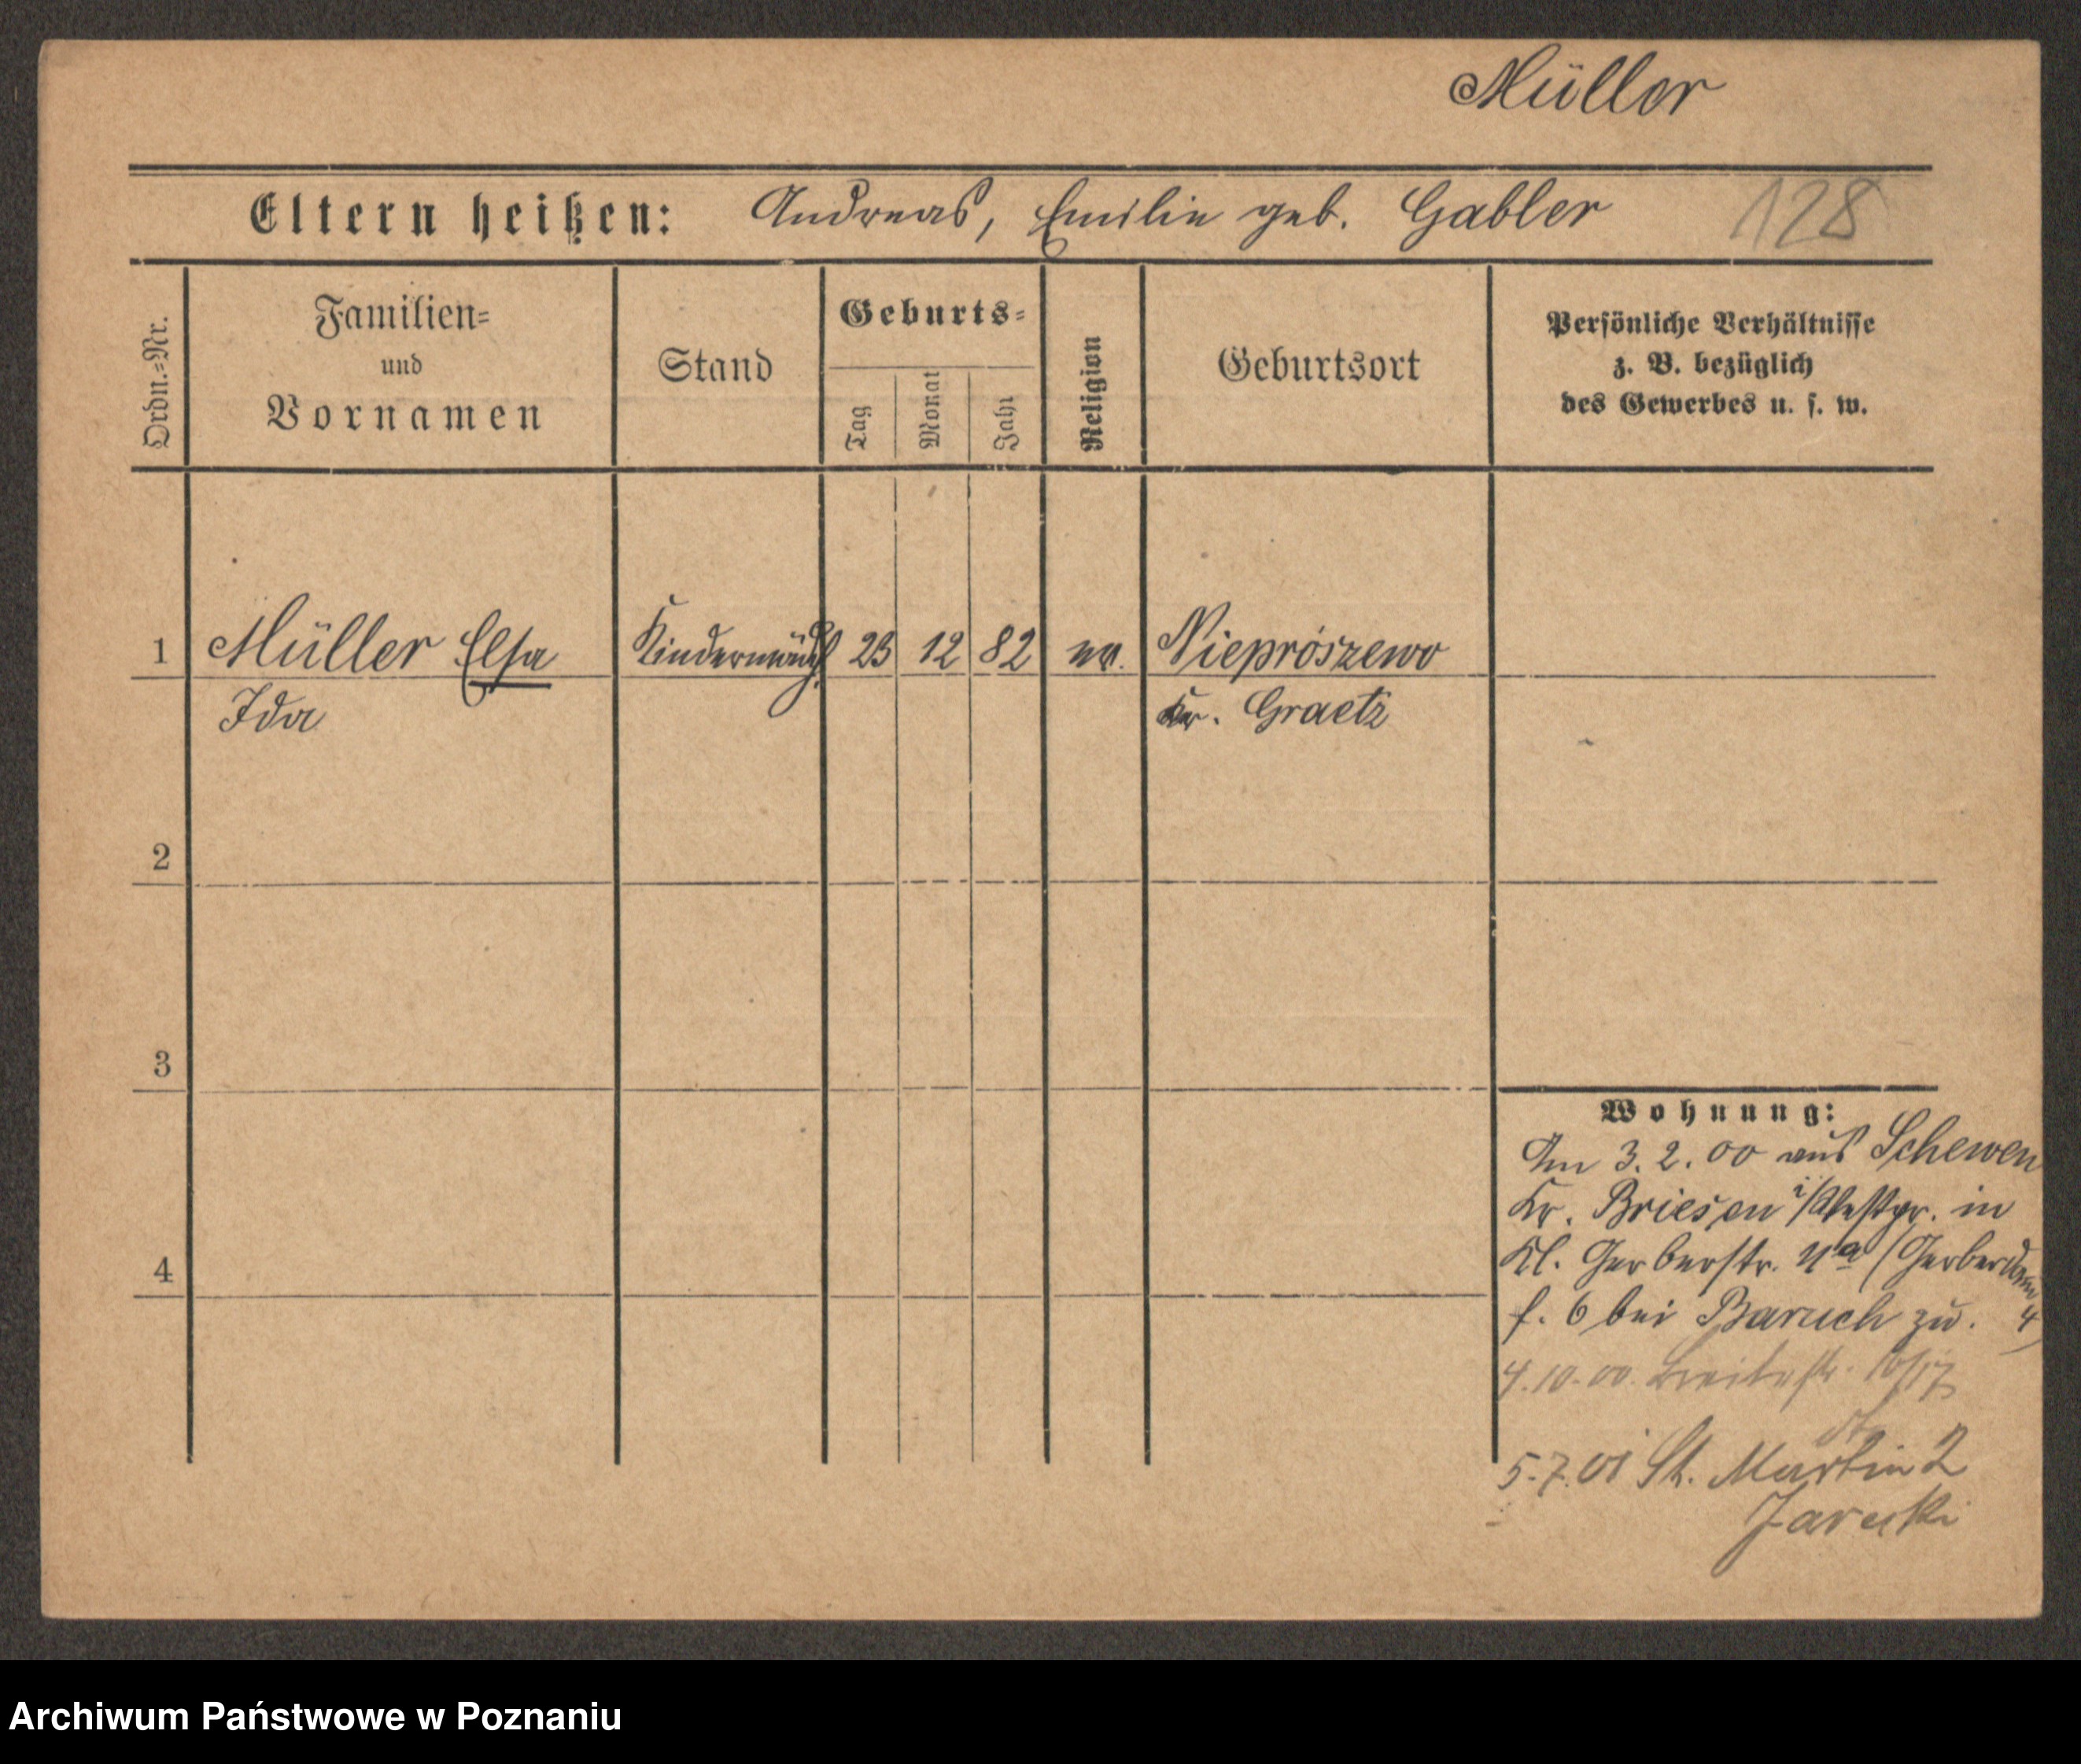 Müller
Eltern heißen: Andreas, Emilie geb. Gabler 128
Ordn.=Nr.
Familien=
und
Vornamen
Stand
Geburts=
Tag
Monat
Jahr
Religion
Geburtsort
Persönliche Verhältnisse
z. B. bezüglich
des Gewerbes u. s. w.
1 Müller Elsa Kindermädch. 23 12 82 ev. Nieprószewo
Ida Kr. Graetz
2
3
4
Wohnung:
Am 3.2.00 aus Schewen
Kr. Briesen i/Westpr. in
Kl. Gerberstr. 4a (Gerberdamm
f. 6 bei Baruch zu. 4)
4.10.00. Breitestr. 16/17
5.7.01 St. Martin 2
Jarecki
Archiwum Państwowe w Poznaniu